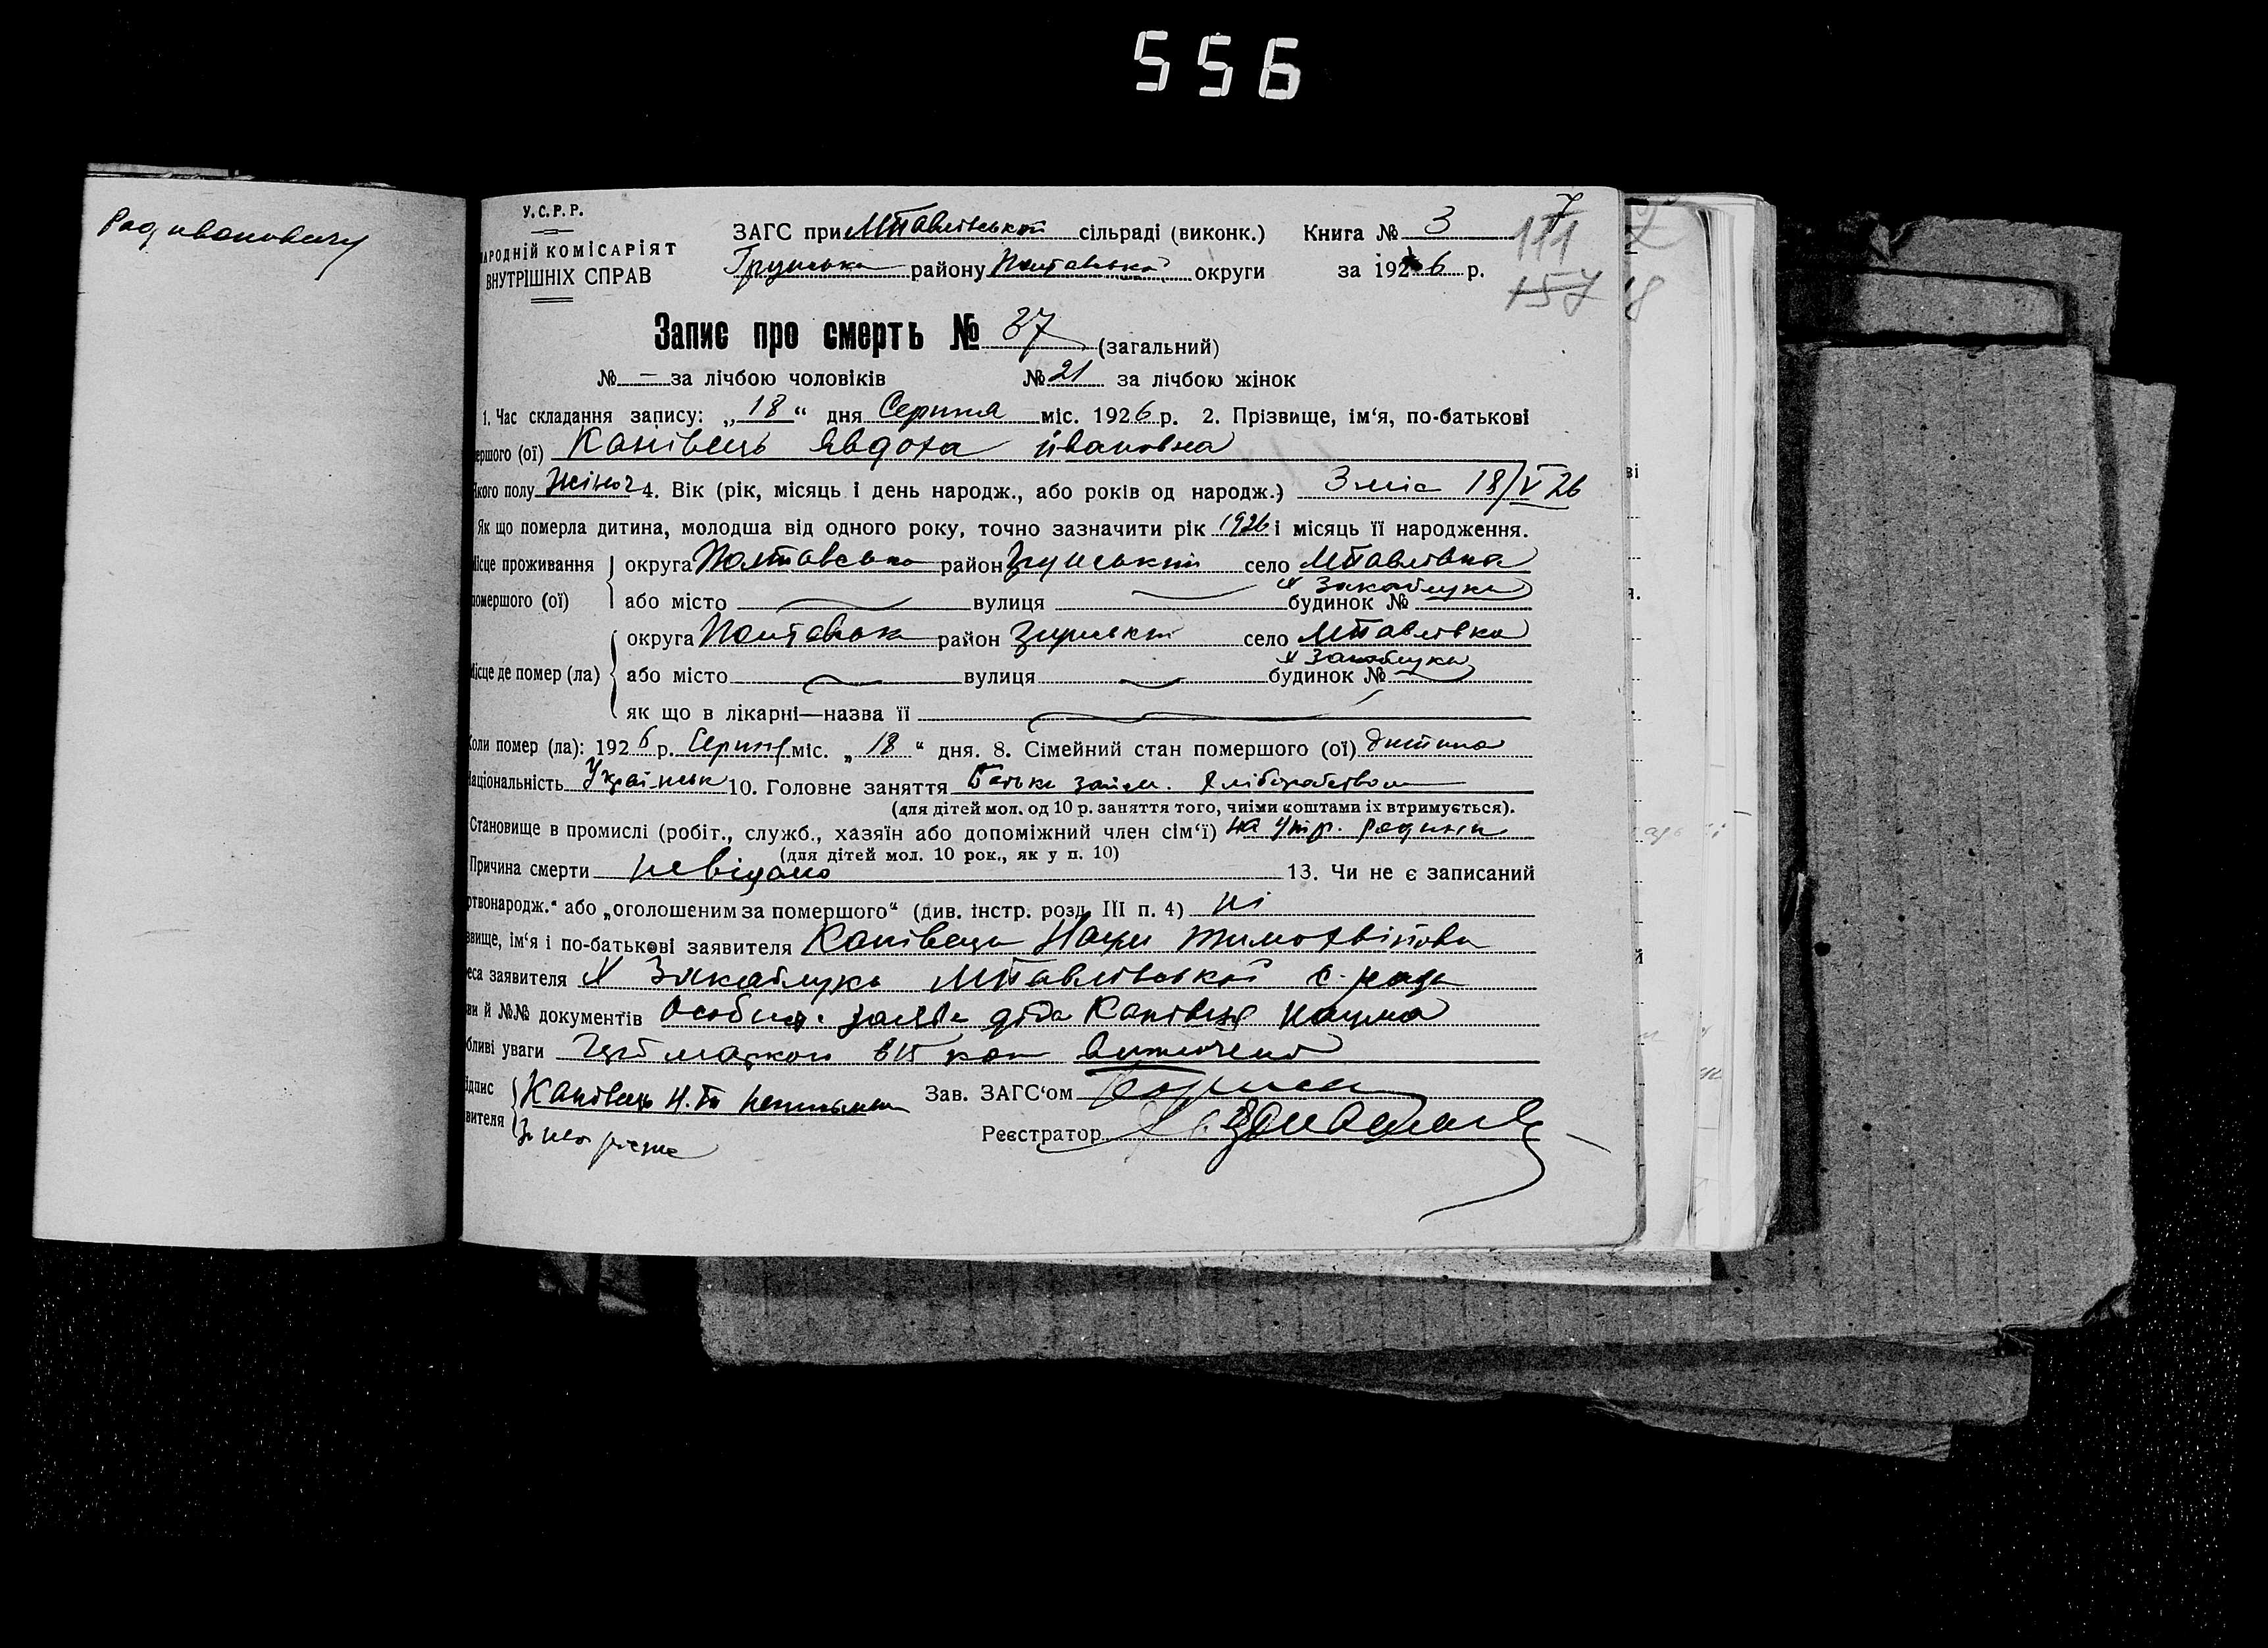 556
Радивоновичу
У.С.Р.Р.
АРОДНІЙ КОМІСАРІЯТ
ВНУТРІШНІХ СПРАВ
ЗАГС при МПавлівській сільраді (виконк.) Книга № 3
району Полтавської округи за 1926 р.
7
111
157
Запис про смерть № 37 (загальний)
№ — за лічбою чоловіків № 21 за лічбою жінок
1. Час складання запису: „18“ дня Серпня міс. 1926 р. 2. Прізвище, ім‘я, по-батькові
ершого (ої) Канівець Явдоха Івановна
якого полу Жіноч 4. Вік (рік, місяць і день народж., або років од народж.) 3 міс 18/V 26
Як що померла дитина, молодша від одного року, точно зазначити рік 1926 і місяць її народження.
Місце проживання округа Полтавська район село МПавлівка
померього (ої) або місто вулиця будинок № х Закаблуки
округа Полтавськ район село МПавлівка
Місце де помер (ла) або місто вулиця будинок № х Закаблуки
як що в лікарні—назва її
Коли помер (ла): 1926 р. Серпня міс. „18“ дня. 8. Сімейний стан помершого (ої) дитина
Національність Українськ 10. Головне заняття Батько займ. Хліборобством
(для дітей мол. од 10 р. заняття того, чиїми коштами їх втримується).
Становище в промислі (робіт., служб., хазяїн або допоміжний член сім‘ї) на утр. родини
(для дітей мол. 10 рок., як у п. 10)
Причина смерти невідомо 13. Чи не є записаний
ртвонародж.“ або „оголошеним за помершого“ (див. інстр. розд. III п. 4) ні
звище, ім‘я і по-батькові заявителя Канівець Наум Тимохвійови
реса заявителя х Закаблуки МПавлівської с. ради
ви й №№ документів Особист. заява діда Канівця Наума
бливі уваги маркою в 15 коп
ідпис Канівець Н. Т. неписьмен Зав. ЗАГС‘ом
вителя За него Реєстратор